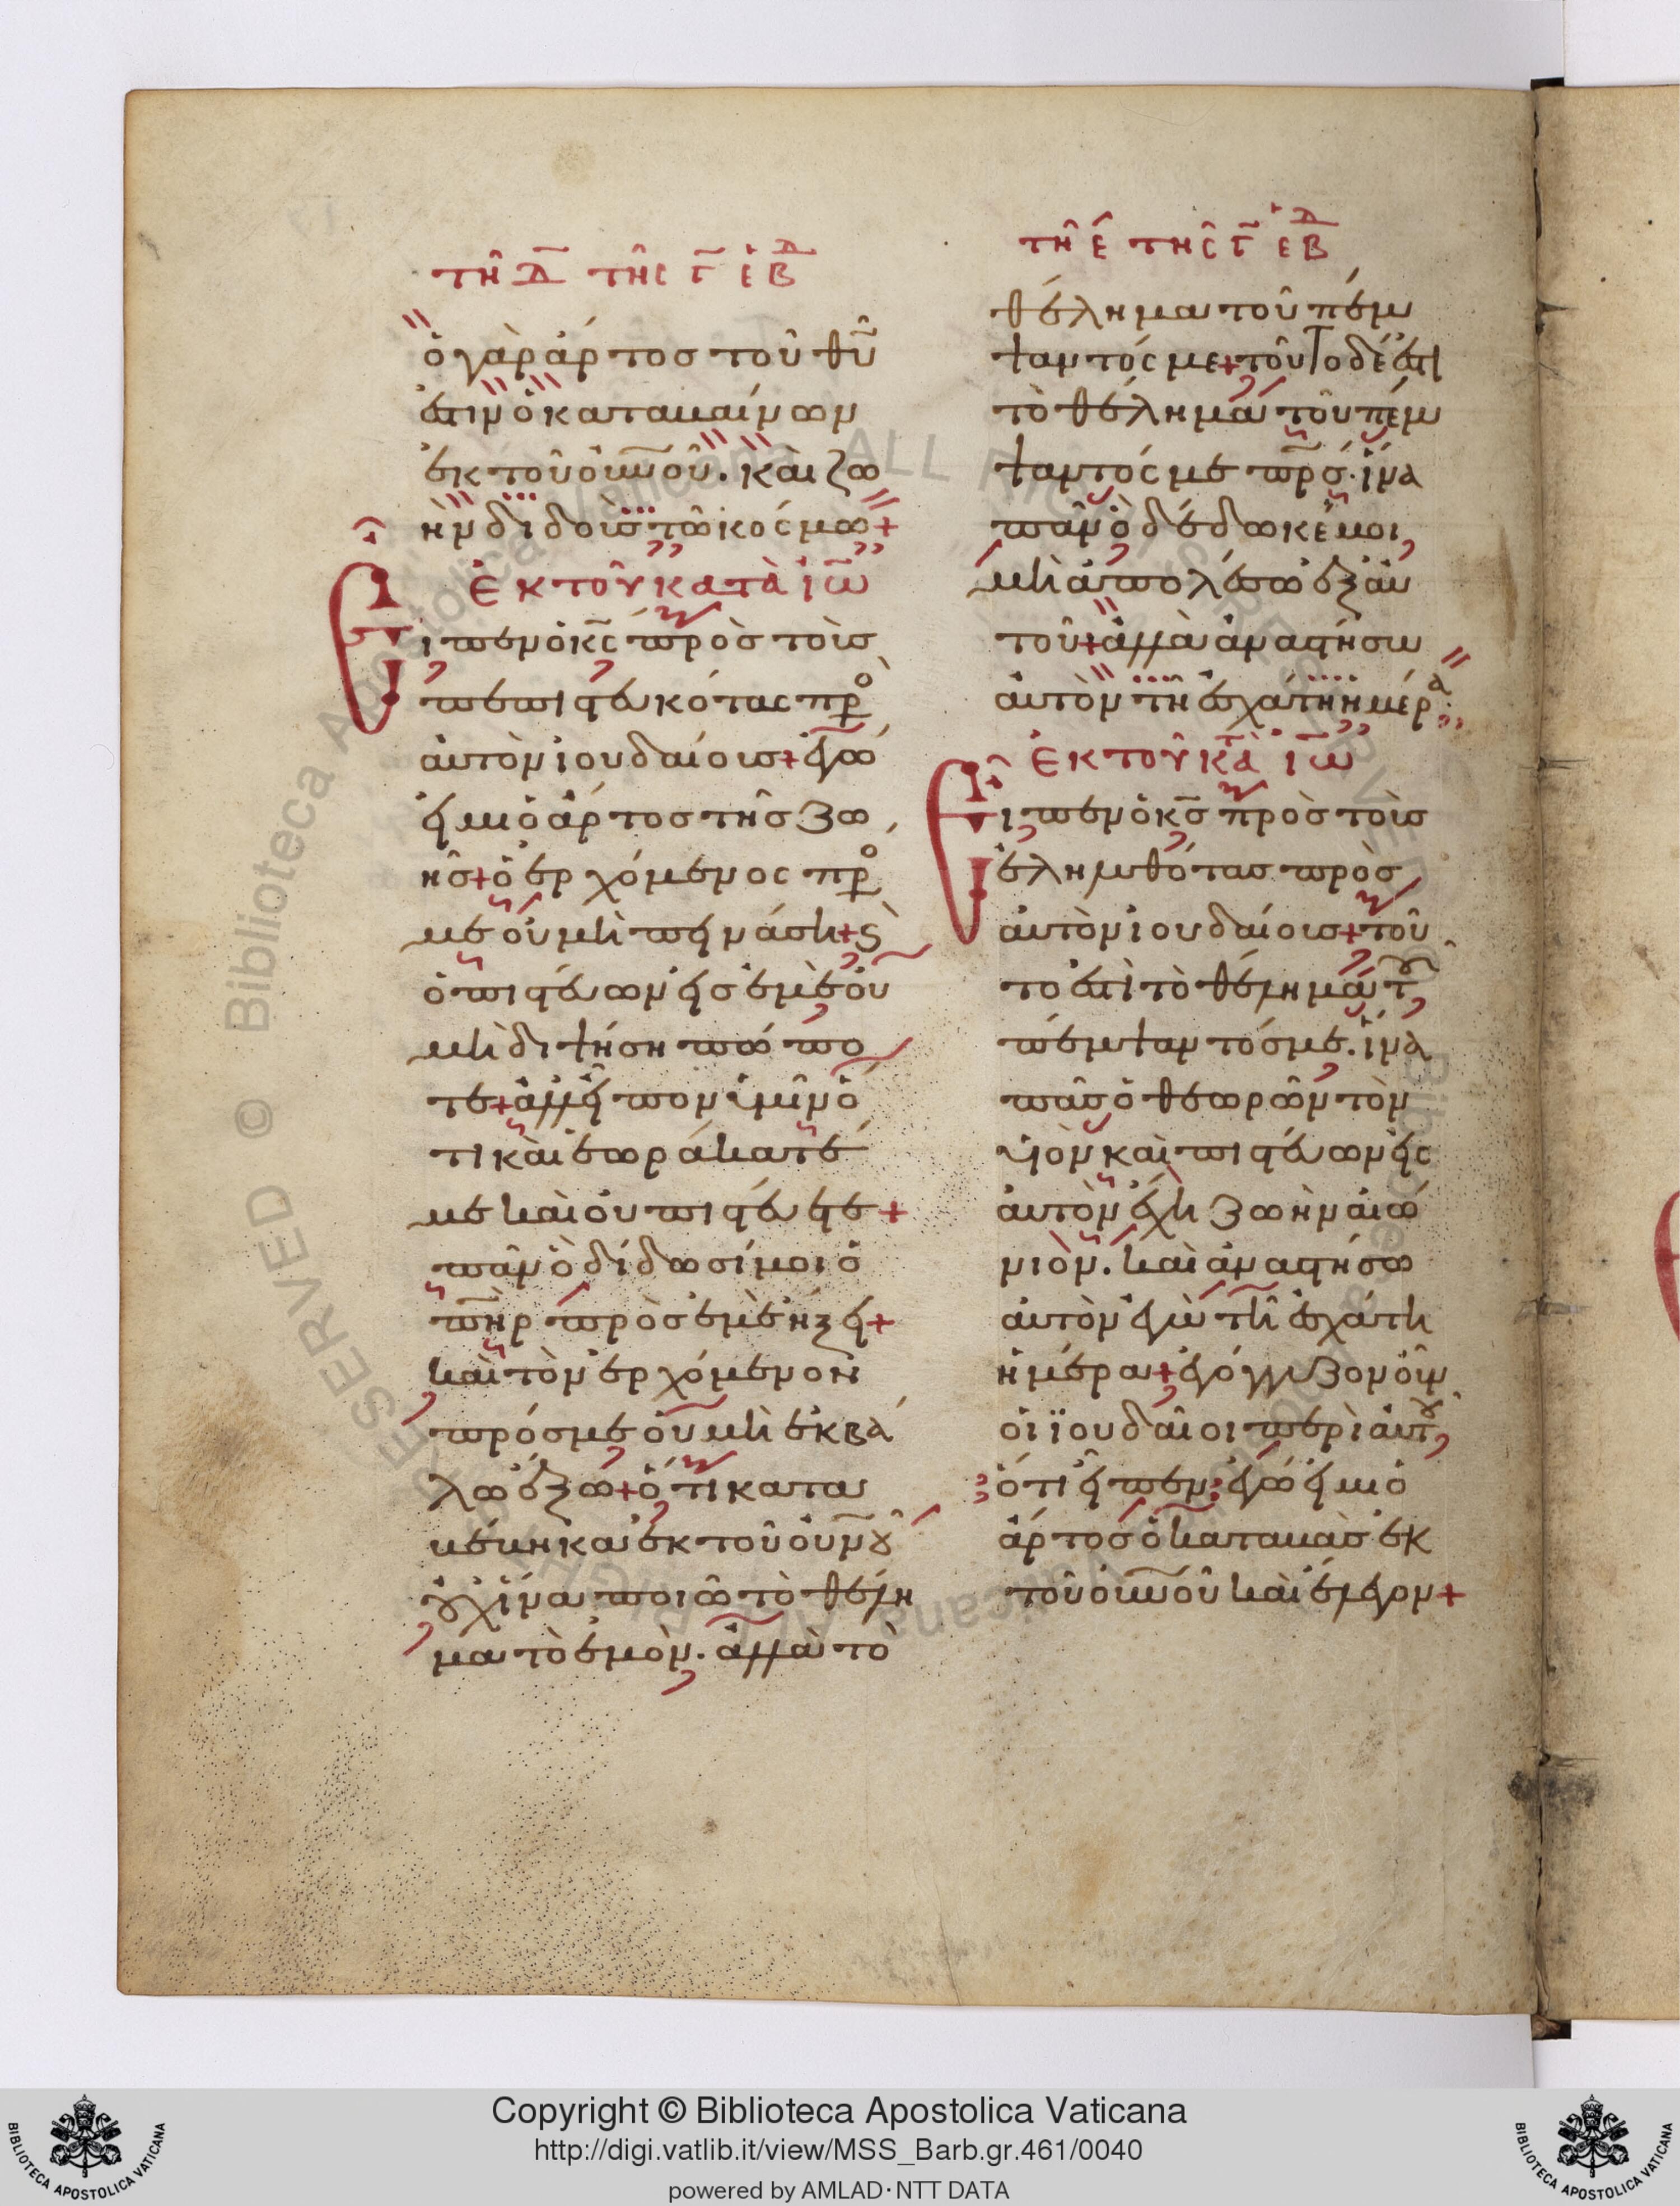 τῆ δ̅ τῆς γ̅ ἑβδ
ὁ γὰρ ἄρτος τοῦ θυ̅
ἐστιν ὁ καταβαίνων
ἐκ τοῦ οὐνου̅. καὶ ζω
ὴν διδοὺς τῶ κόσμω+
Ἐκ τοῦ κατὰ ἰω̅
Εἶπεν ὁ κς̅ πρὸς τοὺς
πεπιστευκότας πρὸ
αὐτὸν ἰουδαίους+ ἐγώ
εἰμι ὁ ἄρτος τῆς ζω
ῆς+ ὁ ἐρχόμενος πρὸ
με οὐ μὴ πεινάση+ ϗ
ὁ πιστεύων εἰς ἐμὲ οὐ
μὴ διψήση πώπο
τε+ ἀλλ' εἶπον ὑμῖν ὅ
τι καὶ ἑωράκατέ
με καὶ οὐ πιστεύετε+
πᾶν ὃ δίδωσί μοι ὁ
πη̅ρ πρὸς ἐμὲ ἥξει+
καὶ τὸν ἐρχόμενον
πρός με οὐ μὴ ἐκβά
λω ἔξω+ ὅτι καταβ
έβηκα ἐκ τοῦ οὐνου̅
οὐχ ἵνα ποιῶ τὸ θέλη
μα τὸ ἐμὸν. ἀλλὰ τὸ
τῆ ε̅ τῆς γ̅ ἑβδ
θέλημα τοῦ πέμ
ψαντός με+ τοῦτο δέ ἐστι
τὸ θέλημα τοῦ πέμ
ψαντός με πρς̅. ἵνα
πᾶν ὃ δέδωκέ μοι,
μὴ ἀπολέσω ἐξ αὐ
τοῦ+ ἀλλὰ ἀναστήσω
αὐτὸν τῆ ἐσχάτη ἡμέρα
Ἐκ τοῦ κατὰ ἰω̅
Εἶπεν ὁ κς̅ πρὸς τοὺς
ἐληλυθότας πρὸς
αὐτὸν ἰουδαίους+ τοῦ
το ἐστὶ τὸ θέλημα τοῦ
πέμψαντός με. ἵνα
πᾶς ὁ θεωρῶν τὸν
υἱὸν καὶ πιστεύων εἰς
αὐτὸν ἔχη ζωὴν αἰώ
νιον. καὶ ἀναστήσω
αὐτὸν ἐγὼ τῆ ἐσχάτη
ἡμέρα+ ἐγόγγυζον οὖν
οἱ ἰουδαῖοι περὶ αὐτοῦ
ὅτι εἶπεν· ἐγώ εἰμι ὁ
ἄρτος ὁ καταβὰς ἐκ
τοῦ οὐνου̅ καὶ ἔλεγον+
Copyright © Biblioteca Apostolica Vaticana
http://digi.vatlib.it/view/MSS_Barb.gr.461/0040
powered by AMLAD·NTT DATA
BIBLIOTECA APOSTOLICA VATICANA
BIBLIOTECA APOSTOLICA VATICANA